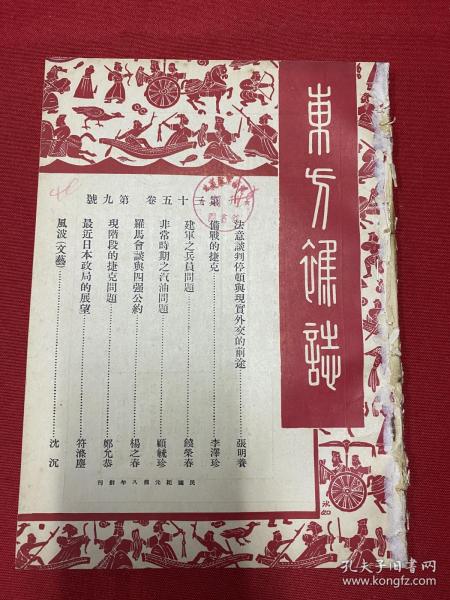 東方雜誌
第三十五卷 第九號
法意談判停頓與現實外交的前途……張明養
備戰的捷克……李澤珍
建軍之兵員問題……饒榮春
非常時期之汽油問題……顧毓珍
羅馬會談與四强公約……楊之春
現階段的捷克問題……鄭允恭
最近日本政局的展望……符滌塵
風波(文藝)……沈沉
民國紀元前八年創刊
孔夫子旧书网
www.kongfz.com